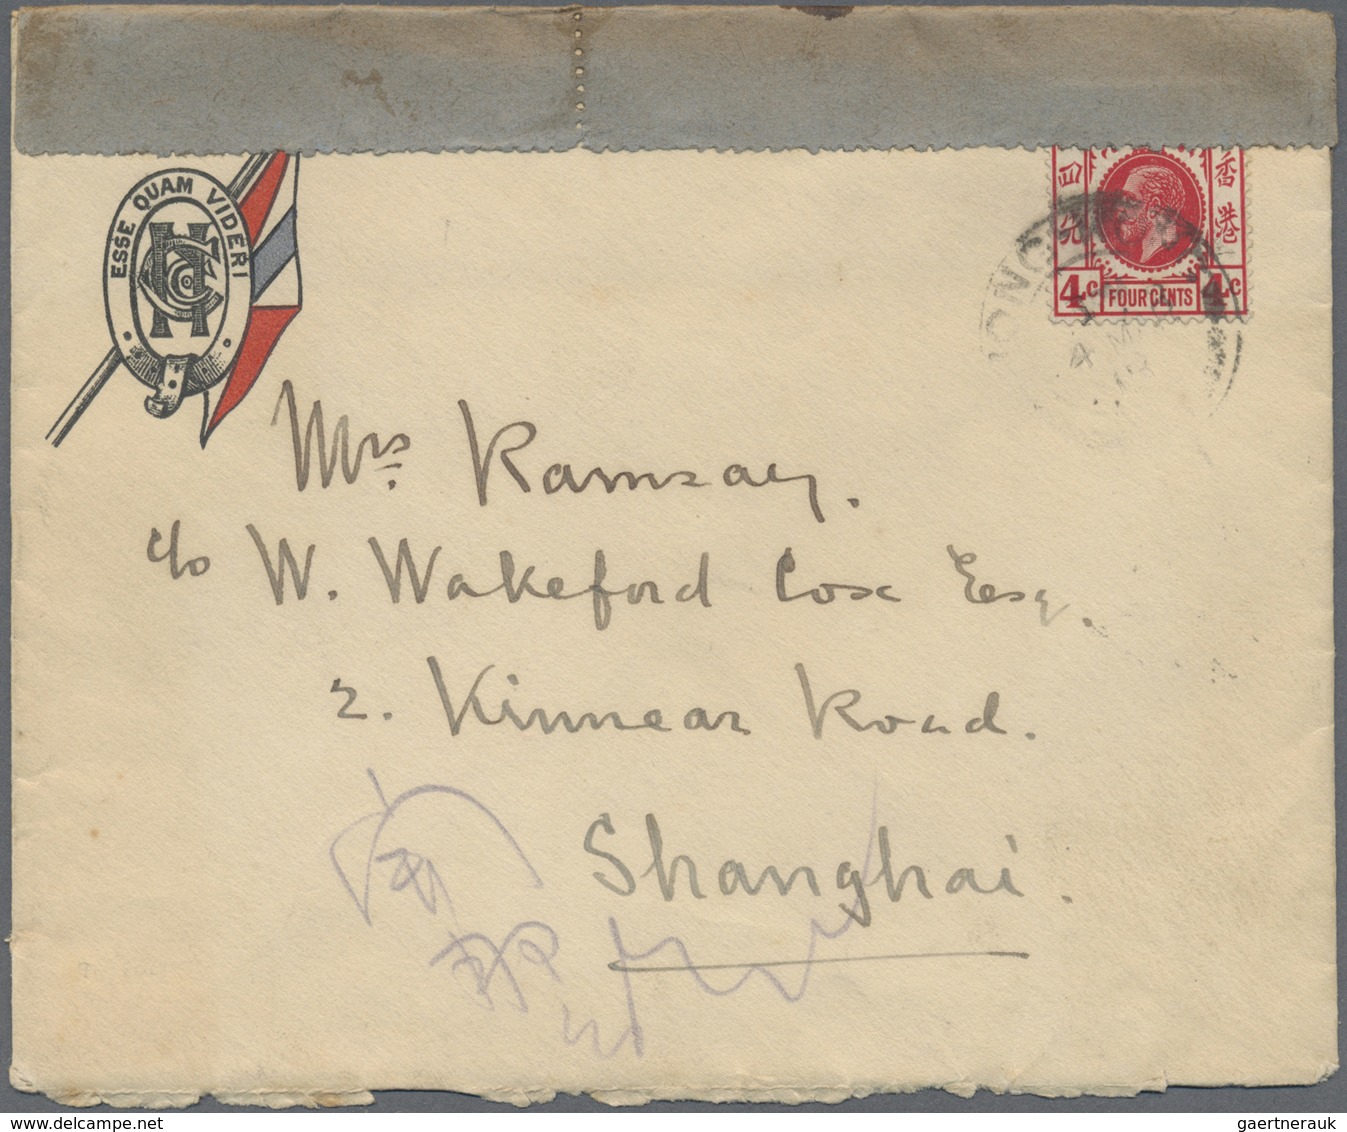 ESSE QUAM VIDERI
HCC
香港
四仙
4c FOUR CENTS 4c
HONG KONG
4 MR
Mrs. Ramsay.
c/o W. Wakeford Cox Esq.
2. Kinnear Road.
Shanghai.
gaertnerauk